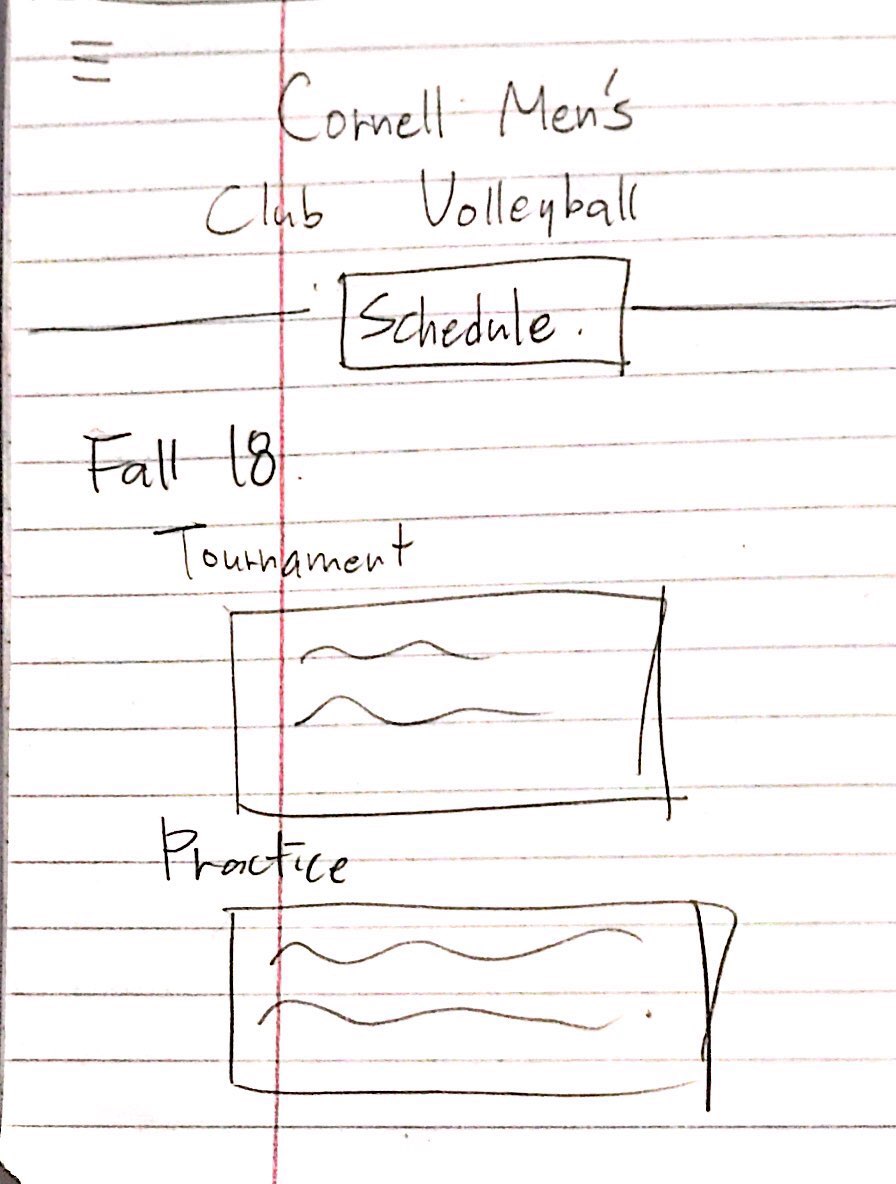 Cornell Men's
Club Volleyball
Schedule.
Fall 18
Tournament
Practice